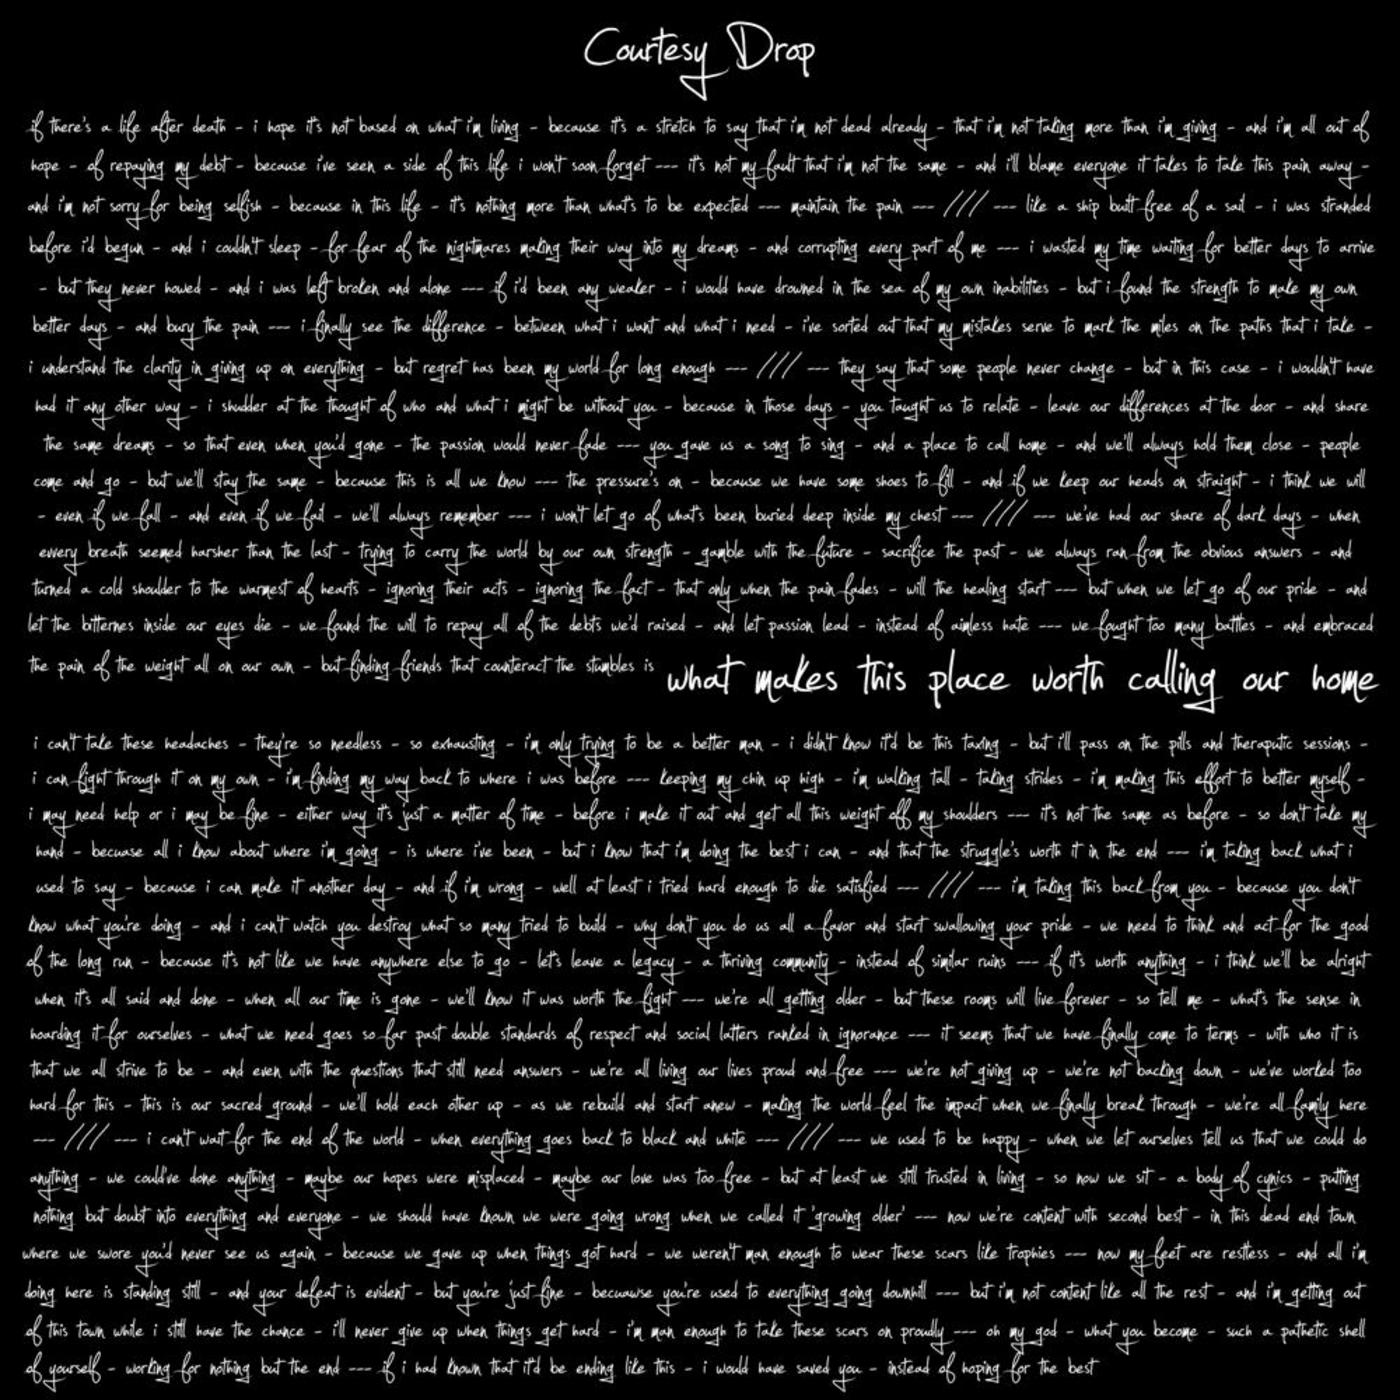 Courtesy Drop
if there's a life after death - i hope it's not based on what i'm living - because it's a stretch to say that i'm not dead already - that i'm not taking more than i'm giving - and i'm all out of
hope - of repaying my debt - because i've seen a side of this life i won't soon forget --- it's not my fault that i'm not the same - and i'll blame everyone it takes to take this pain away -
and i'm not sorry for being selfish - because in this life - it's nothing more than what's to be expected --- maintain the pain --- //// --- like a ship built free of a sail - i was stranded
before i'd begun - and i couldn't sleep - for fear of the nightmares making their way into my dreams - and corrupting every part of me --- i wasted my time waiting for better days to arrive
- but they never howed - and i was left broken and alone --- if i'd been any weaker - i would have drowned in the sea of my own inabilities - but i found the strength to make my own
better days - and bury the pain --- i finally see the difference - between what i want and what i need - i've sorted out that my mistakes serve to mark the miles on the paths that i take -
i understand the clarity in giving up on everything - but regret has been my world for long enough --- //// --- they say that some people never change - but in this case - i wouldn't have
had it any other way - i shudder at the thought of who and what i might be without you - because in those days - you taught us to relate - leave our differences at the door - and share
the same dreams - so that even when you'd gone - the passion would never fade --- you gave us a song to sing - and a place to call home - and we'll always hold them close - people
come and go - but we'll stay the same - because this is all we know --- the pressure's on - because we have some shoes to fill - and if we keep our heads on straight - i think we will
- even if we fall - and even if we fail - we'll always remember --- i won't let go of what's been buried deep inside my chest --- //// --- we've had our share of dark days - when
every breath seemed harsher than the last - trying to carry the world by our own strength - gamble with the future - sacrifice the past - we always ran from the obvious answers - and
turned a cold shoulder to the warmest of hearts - ignoring their acts - ignoring the fact - that only when the pain fades - will the healing start --- but when we let go of our pride - and
let the bitternes inside our eyes die - we found the will to repay all of the debts we'd raised - and let passion lead - instead of aimless hate --- we fought too many battles - and embraced
the pain of the weight all on our own - but finding friends that counteract the stumbles is what makes this place worth calling our home
i can't take these headaches - they're so needless - so exhausting - i'm only trying to be a better man - i didn't know it'd be this taxing - but i'll pass on the pills and theraputic sessions -
i can fight through it on my own - i'm finding my way back to where i was before --- keeping my chin up high - i'm walking tall - taking strides - i'm making this effort to better myself -
i may need help or i may be fine - either way it's just a matter of time - before i make it out and get all this weight off my shoulders --- it's not the same as before - so don't take my
hand - becuase all i know about where i'm going - is where i've been - but i know that i'm doing the best i can - and that the struggle's worth it in the end --- i'm taking back what i
used to say - because i can make it another day - and if i'm wrong - well at least i tried hard enough to die satisfied --- //// --- i'm taking this back from you - because you don't
know what you're doing - and i can't watch you destroy what so many tried to build - why don't you do us all a favor and start swallowing your pride - we need to think and act for the good
of the long run - because it's not like we have anywhere else to go - let's leave a legacy - a thriving community - instead of similar ruins --- if it's worth anything - i think we'll be alright
when it's all said and done - when all our time is gone - we'll know it was worth the fight --- we're all getting older - but these rooms will live forever - so tell me - what's the sense in
hoarding it for ourselves - what we need goes so far past double standards of respect and social latters ranked in ignorance --- it seems that we have finally come to terms - with who it is
that we all strive to be - and even with the questions that still need answers - we're all living our lives proud and free --- we're not giving up - we're not backing down - we've worked too
hard for this - this is our sacred ground - we'll hold each other up - as we rebuild and start anew - making the world feel the impact when we finally break through - we're all family here
--- //// --- i can't wait for the end of the world - when everything goes back to black and white --- //// --- we used to be happy - when we let ourselves tell us that we could do
anything - we could've done anything - maybe our hopes were misplaced - maybe our love was too free - but at least we still trusted in living - so now we sit - a body of cynics - putting
nothing but doubt into everything and everyone - we should have known we were going wrong when we called it 'growing older' --- now we're content with second best - in this dead end town
where we swore you'd never see us again - because we gave up when things got hard - we weren't man enough to wear these scars like trophies --- now my feet are restless - and all i'm
doing here is standing still - and your defeat is evident - but you're just fine - becuawse you're used to everything going downhill --- but i'm not content like all the rest - and i'm getting out
of this town while i still have the chance - i'll never give up when things get hard - i'm man enough to take these scars on proudly --- oh my god - what you become - such a pathetic shell
of yourself - working for nothing but the end --- if i had known that it'd be ending like this - i would have saved you - instead of hoping for the best